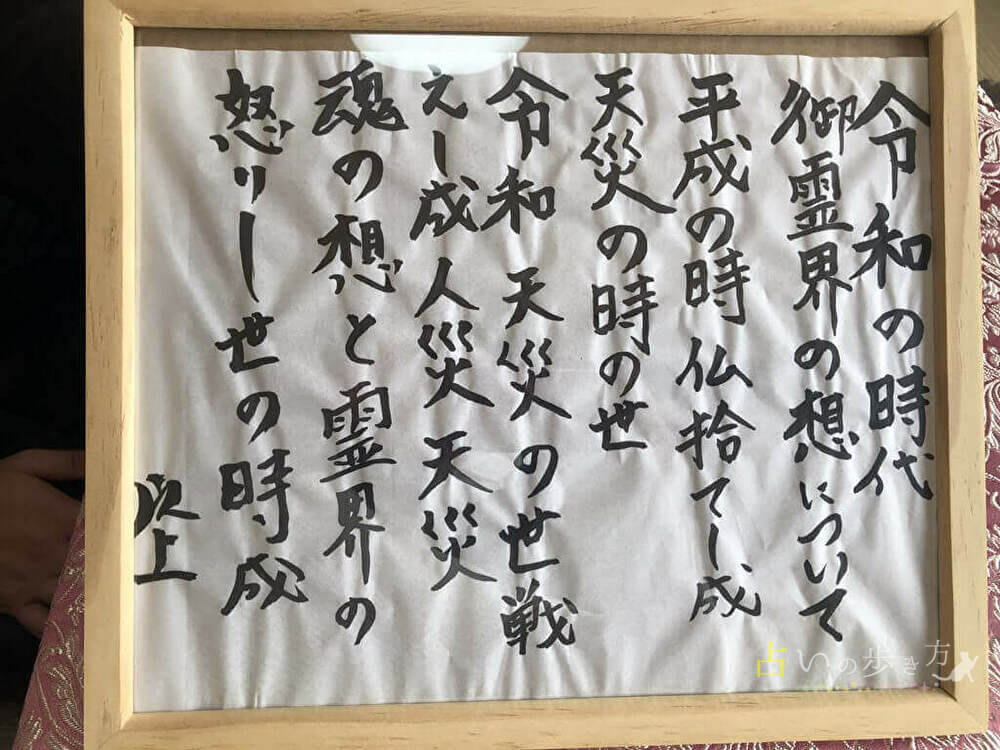 令和の時代
御霊界の想について
平成の時 仏拾てし成
天災の時の世
令和 天災の世戦
えし成 人災 天災
魂の想と霊界の
怒りし世の時成
以上
占いの歩き方